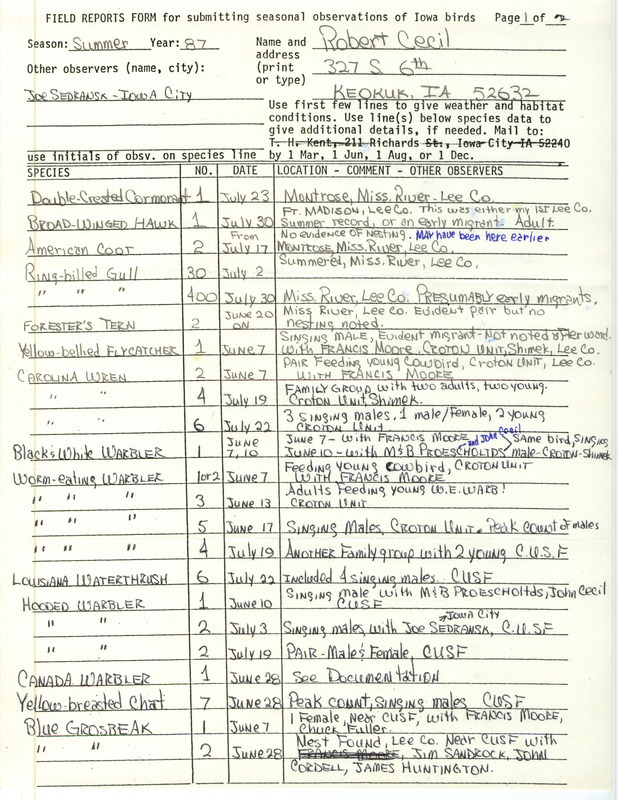 FIELD REPORTS FORM for submitting seasonal observations of Iowa birds Page 1 of 2
Season: Summer Year: 87 Name and address (print or type) Robert Cecil
Other observers (name, city): 327 S 6th
Joe Sedransk - Iowa City KEOKUK, IA 52632
Use first few lines to give weather and habitat
conditions. Use line(s) below species data to
give additional details, if needed. Mail to:
T. H. Kent, 211 Richards St., Iowa City IA 52240
use initials of obsv. on species line by 1 Mar, 1 Jun, 1 Aug, or 1 Dec.
SPECIES NO. DATE LOCATION - COMMENT - OTHER OBSERVERS
Double-Crested Cormorant 1 July 23 Montrose, Miss. River - Lee Co.
BROAD-WINGED HAWK 1 July 30 Ft. MADISON, LEE Co. This was either my 1st Lee Co.
Summer record, or an early migrant. Adult.
American Coot 2 From July 17 No evidence of nesting. May have been here earlier
MONTROSE, Miss. River, Lee Co.
Ring-billed Gull 30 July 2 Summered, Miss. River, Lee Co.
" " " 400 July 30 Miss. River, Lee Co. PRESUMABLY early migrants.
FORESTER'S TERN 2 June 20 on Miss River, Lee Co. Evident pair but no
nesting noted.
Yellow-bellied FLYCATCHER 1 June 7 SINGING MALE, Evident migrant - Not noted afterward.
With FRANCIS Moore. CROTON UNIT, Shimek, Lee Co.
CAROLINA WREN 2 June 7 PAIR Feeding young Cowbird, Croton Unit, Lee Co.
WITH FRANCIS MOORE
" " 4 July 19 FAMILY GROUP with two adults, two young.
Croton Unit, Shimek.
" " 6 July 22 3 Singing males, 1 male/Female, 2 young
CROTON UNIT
Black & White WARBLER 1 June 7, 10 June 7 - with FRANCIS MOORE and John Cecil Same bird, Singing
June 10 - with M&B PROESCHOLTDS male - CROTON - Shimek
Worm-eating WARBLER 1 or 2 June 7 Feeding young Cowbird, CROTON UNIT
WITH FRANCIS MOORE
" " " 3 June 13 Adults Feeding young W.E. WARB!
CROTON UNIT
" " " 5 June 17 Singing Males, CROTON UNIT. Peak count of males
" " " 4 July 19 ANOTHER Family group with 2 young C.U.S.F
LOUISIANA WATERTHRUSH 6 July 22 Included 4 singing males. CUSF
HOODED WARBLER 1 June 10 Singing male with M&B PROESCHOLTDS, John Cecil
CUSF
" " 2 July 3 Singing males, with Joe SEDRANSK, Iowa City C.U.SF
" " 2 July 19 PAIR - Male & Female, CUSF
CANADA WARBLER 1 June 28 See Documentation
Yellow-breasted Chat 7 June 28 Peak count, singing males CUSF
Blue GROSBEAK 1 June 7 1 Female, Near CUSF, with FRANCIS MOORE,
Chuck Fuller.
" " 2 June 28 Nest Found, Lee Co. Near CUSF with
FRANCIS MOORE, JIM SANDROCK, JOHN
CORDELL, JAMES HUNTINGTON.